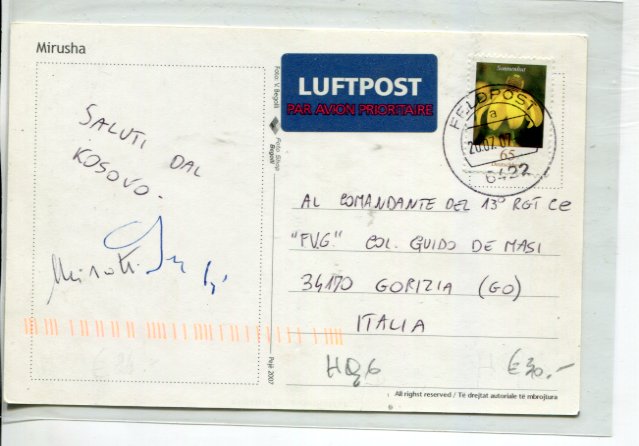 Mirusha
SALUTI DAL
KOSOVO.
Foto: V. Begolli
Foto Shop
Begolli
Pejë 2007
LUFTPOST
PAR AVION PRIORITAIRE
Sonnenhut
65
FELDPOST
a
20.07.07
6422
AL COMANDANTE DEL 13° RGT CC
"FVG" COL. GUIDO DE MASI
34170 GORIZIA (GO)
ITALIA
€ 30.-
All righst reserved / Të drejtat autoriale të mbrojtura